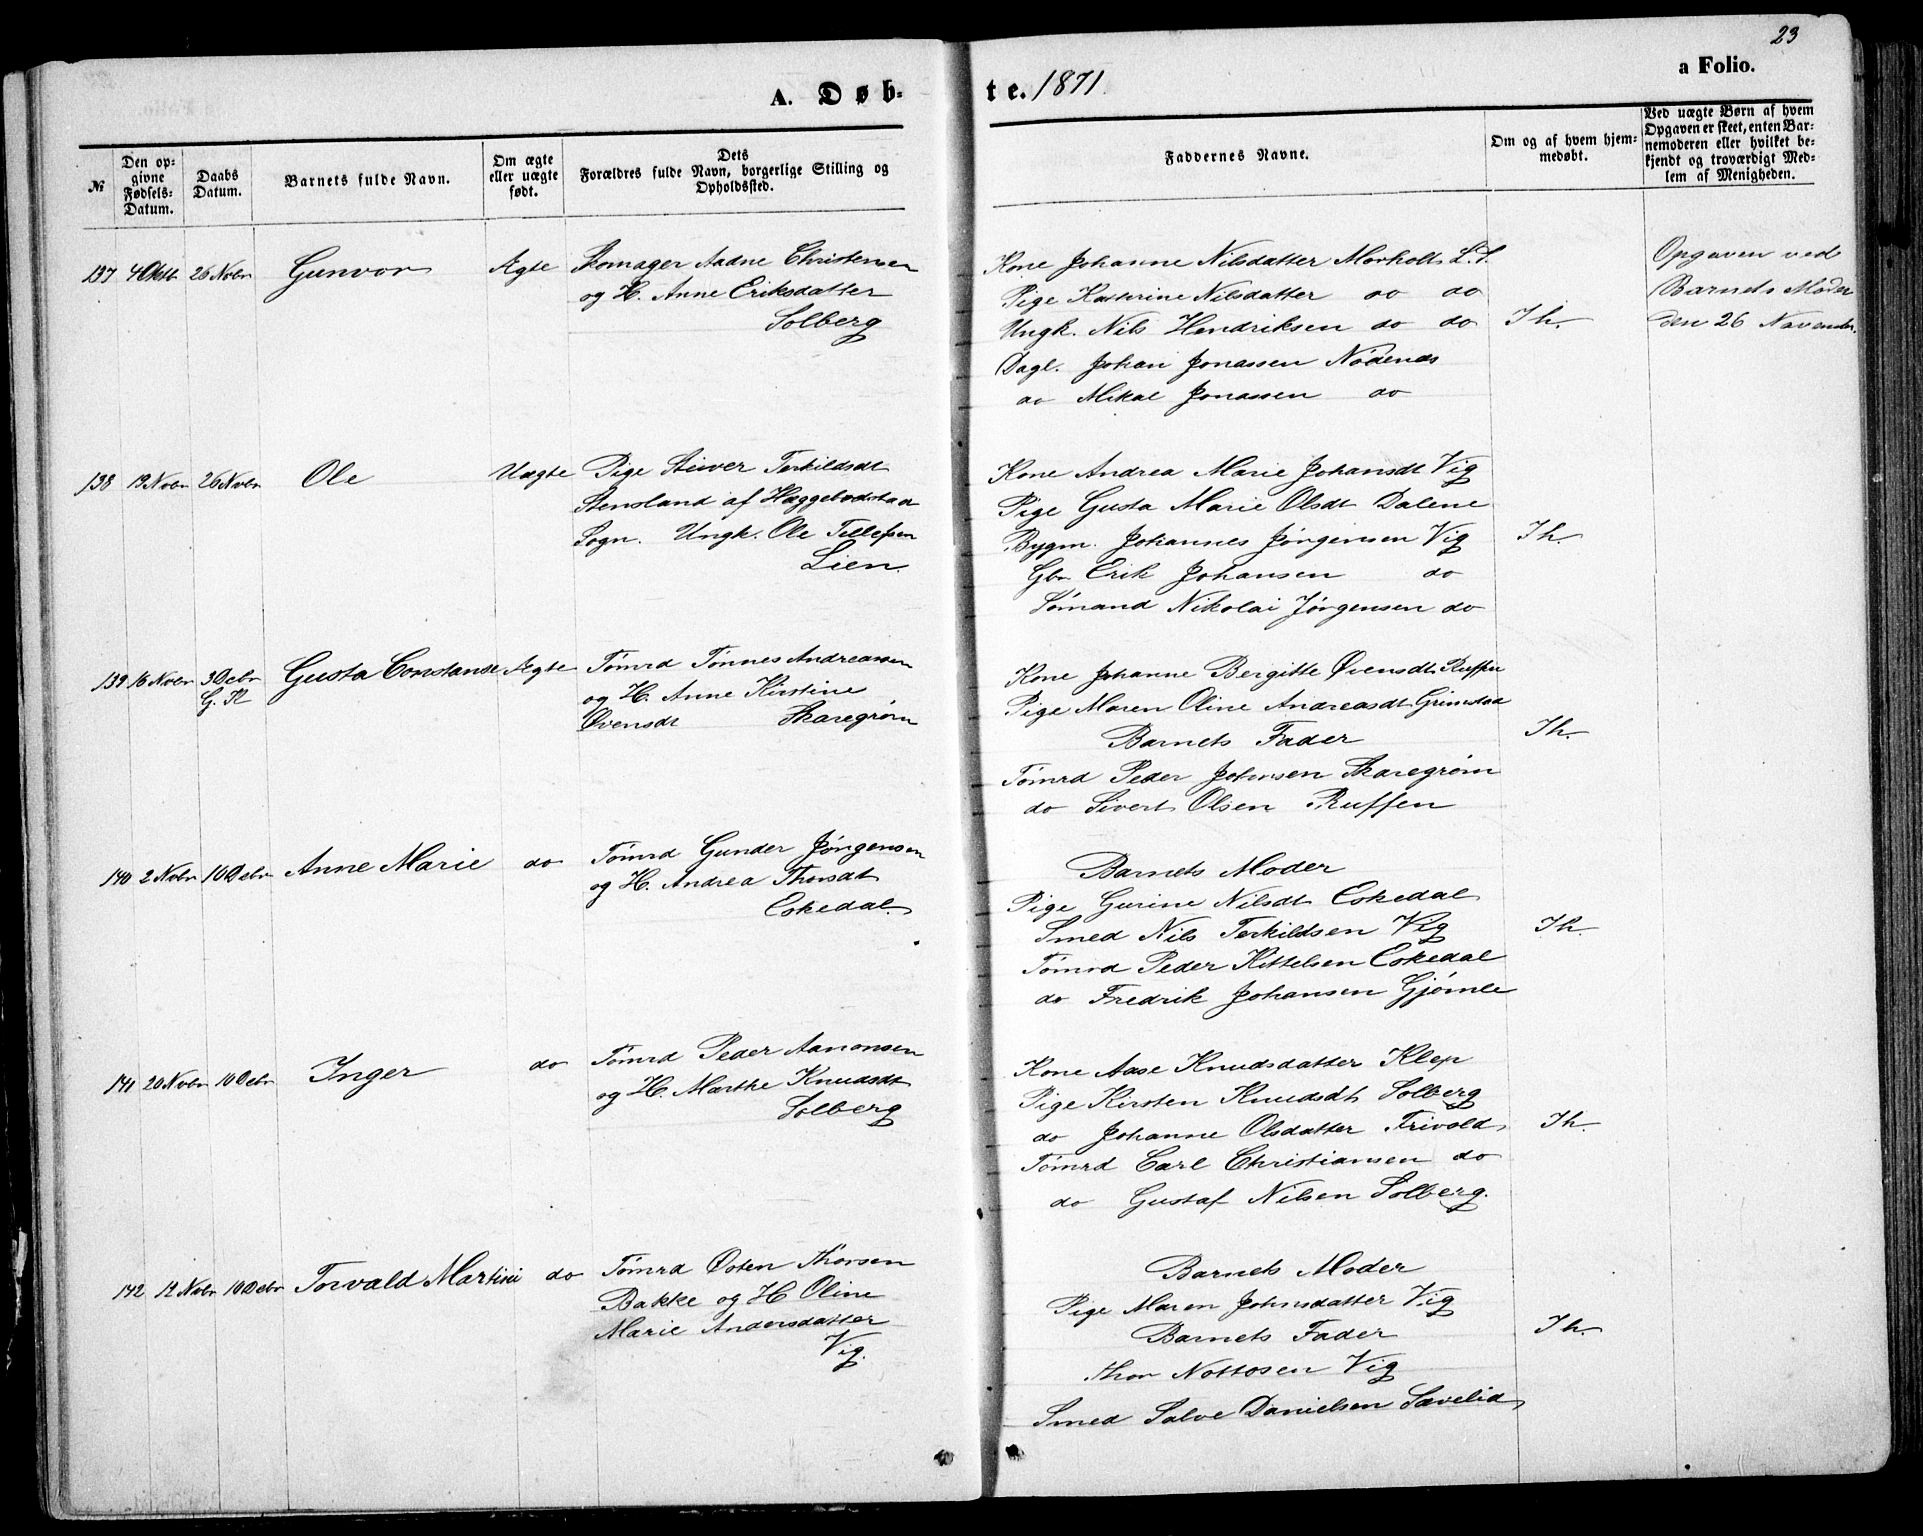 23
A. Døb-
te. 1871
a Folio.
№
Den op-
givne
Fødsels-
Datum.
Daabs
Datum.
Barnets fulde Navn.
Om ægte
eller uægte
født.
Dets
Forældres fulde Navn, borgerlige Stilling og
Opholdssted.
Faddernes Navne.
Om og af hvem hjem-
medøbt.
Ved uægte Børn af hvem
Opgaven er skeet, enten Bar-
nemoderen eller hvilket be-
kjendt og troværdigt Med-
lem af Menigheden.
137 4 Oktb 26 Nobr Gunvor Ægte Skomager Aadne Christensen
og H. Anne Eriksdatter
Solberg
Kone Johanne Nilsdatter Morholt L.S.
Pige Katerine Nilsdatter do do
Ungk. Nils Hendriksen do do
Dagl. Johan Jonassen Nödenes
do Mikal Jonassen do
Ih.
Opgaven ved
Barnets Moder
den 26 November.
138 19 Nobr 26 Nobr Ole Uægte Pige Siever Terkildsdt
Stensland af Haggebodstad
Sogn. Ungk. Ole Tellefsen
Lien.
Kone Andrea Marie Johansdt Vig
Pige Gusta Marie Olsdt Dalene
Bygm. Johannes Jörgensen Vig
Gbr Erik Johansen do
Sömand Nikolai Jörgensen do
Ih
139 16 Nobr 3 Debr Gusta Constanse Ægte Tömrd Tönnes Andreassen
G. K
og H. Anne Kirstine
Övensdt Skaregröm
Kone Johanne Bergitte Övensdt Ruffen
Pige Maren Oline Andreasdt Grimstad
Barnets Fader
Tömrd Peder Johnsen Skaregröm
do Sivert Olsen Ruffen
Ih.
140 2 Nobr 10 Debr Anne Marie do Tömrd Gunder Jörgensen
og H. Andrea Thorsdt
Eskedal
Barnets Moder
Pige Gurine Nilsdt Eskedal
Smed Nils Terkildsen Vig
Tömrd Peder Kittelsen Eskedal
do Fredrik Johansen Gjömle
Ih.
141 20 Nobr 10 Debr Inger do Tömrd Peder Aanonsen
og H. Marthe Knudsdt
Solberg
Kone Aase Knudsdatter Klep
Pige Kirsten Knudsdt Solberg
do Johanne Olsdatter Frivold
Tömrd Carl Christiansen do
do Gustaf Nilsen Solberg.
Ih.
142 12 Nobr 10 Debr Torvald Martin do Tömrd Östen Thorsen
Bakke og H Oline
Marie Andersdatter
Vig.
Barnets Moder
Pige Maren Johnsdatter Vig
Barnets Fader
Thor Nottosen Vig
Smed Salve Danielsen Sævelid
Ih.